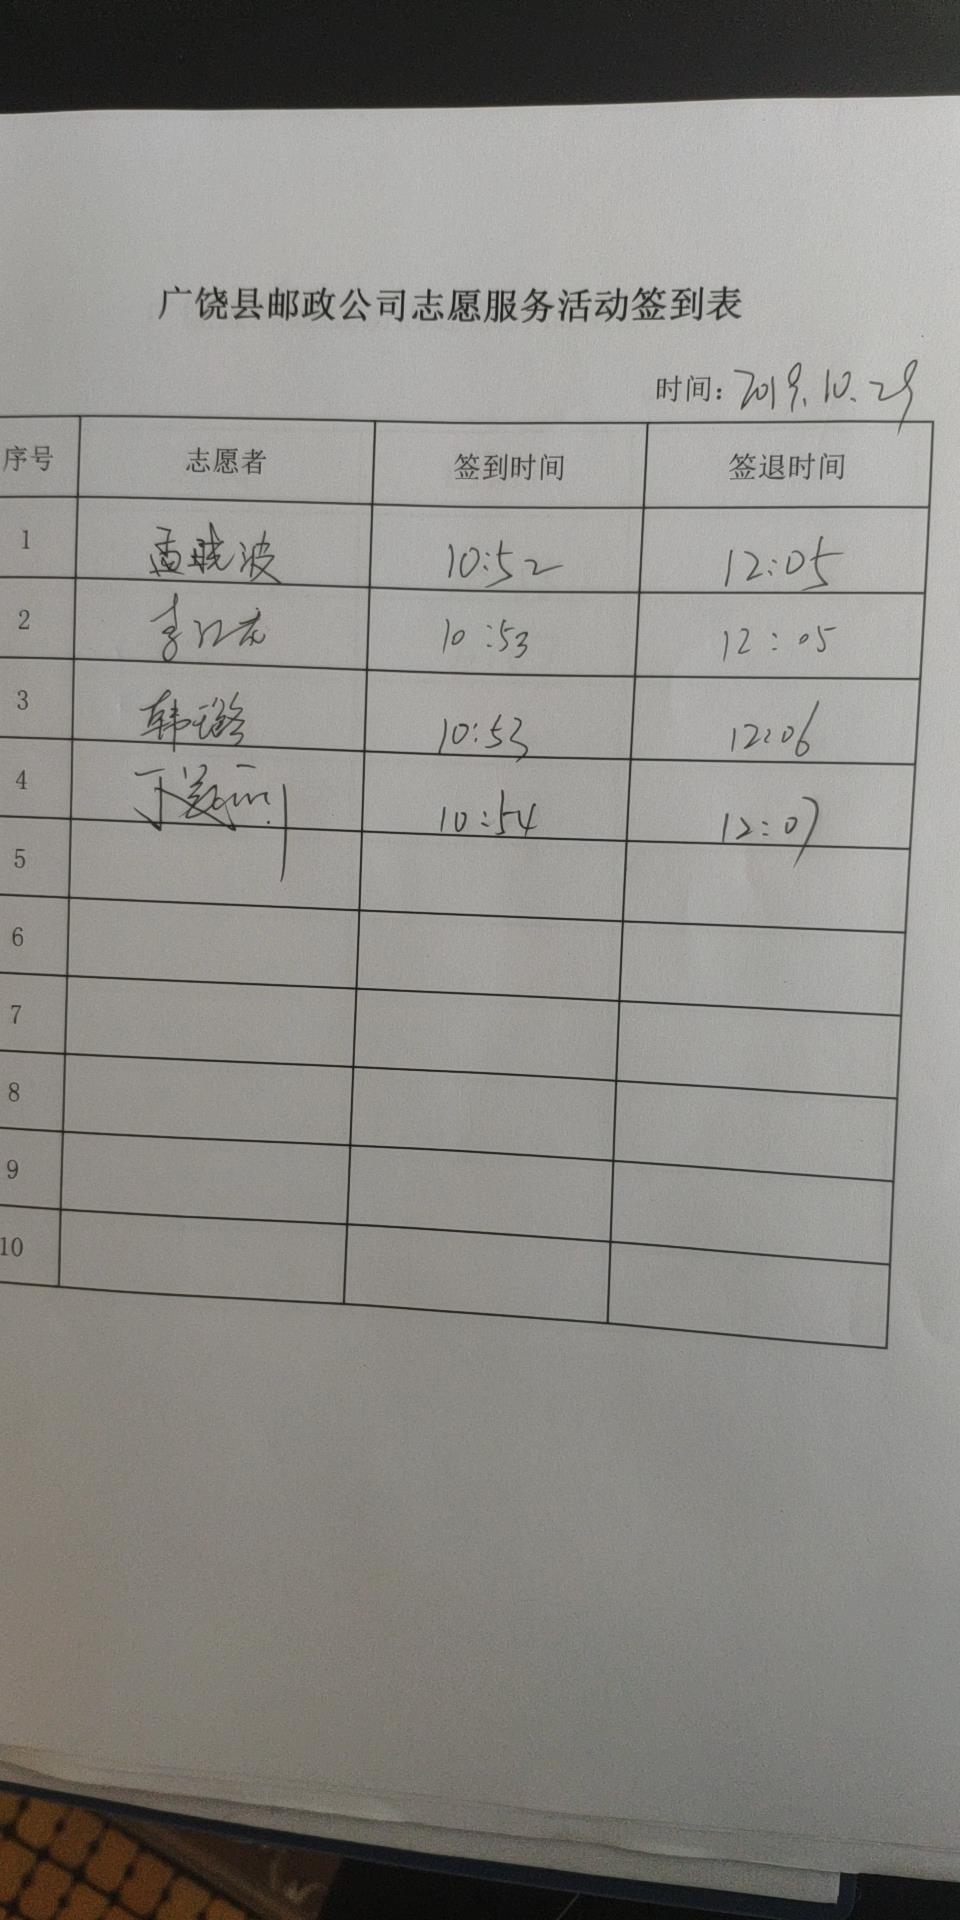 广饶县邮政公司志愿服务活动签到表
时间：2019.10.29
序号 志愿者 签到时间 签退时间
1 孟晓波 10:52 12:05
2 李红志 10:53 12:05
3 韩璐 10:53 12:06
4 10:54 12:07
5
6
7
8
9
10